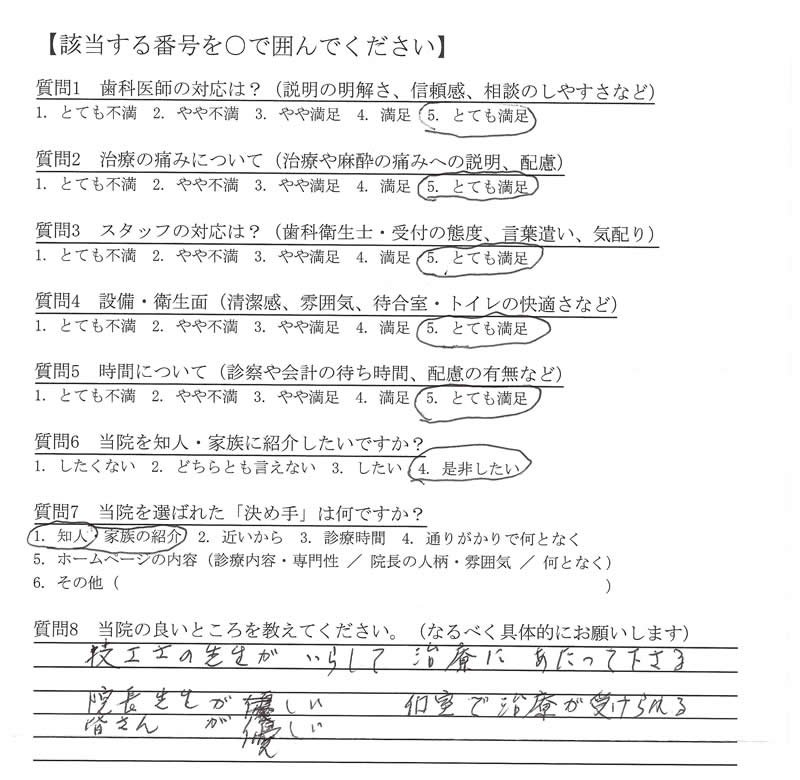 【該当する番号を○で囲んでください】
質問1　歯科医師の対応は？（説明の明解さ、信頼感、相談のしやすさなど）
1. とても不満　2. やや不満　3. やや満足　4. 満足　5. とても満足
質問2　治療の痛みについて（治療や麻酔の痛みへの説明、配慮）
1. とても不満　2. やや不満　3. やや満足　4. 満足　5. とても満足
質問3　スタッフの対応は？（歯科衛生士・受付の態度、言葉遣い、気配り）
1. とても不満　2. やや不満　3. やや満足　4. 満足　5. とても満足
質問4　設備・衛生面（清潔感、雰囲気、待合室・トイレの快適さなど）
1. とても不満　2. やや不満　3. やや満足　4. 満足　5. とても満足
質問5　時間について（診察や会計の待ち時間、配慮の有無など）
1. とても不満　2. やや不満　3. やや満足　4. 満足　5. とても満足
質問6　当院を知人・家族に紹介したいですか？
1. したくない　2. どちらとも言えない　3. したい　4. 是非したい
質問7　当院を選ばれた「決め手」は何ですか？
1. 知人・家族の紹介　2. 近いから　3. 診療時間　4. 通りがかりで何となく
5. ホームページの内容（診療内容・専門性 ／ 院長の人柄・雰囲気 ／ 何となく）
6. その他（　　　　　　　　　　　　　　　　　　）
質問8　当院の良いところを教えてください。（なるべく具体的にお願いします）
技工士の先生が　いらして　治療に　あたって下さる
院長先生が　優しい　　個室で治療が受けられる
皆さん　が　優しい